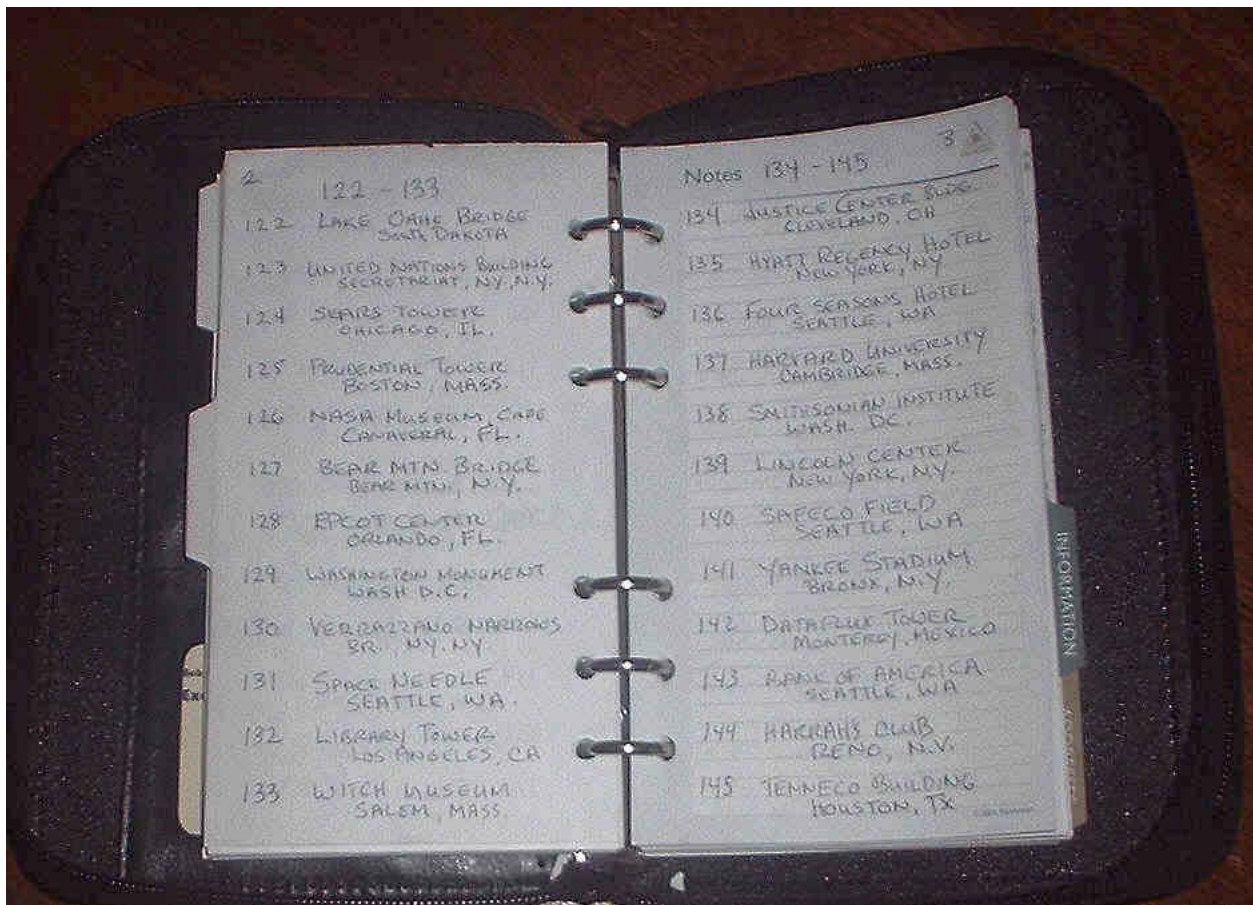 2
122 - 133
122 LAKE OAHE BRIDGE
SOUTH DAKOTA
123 UNITED NATIONS BUILDING
SECRETARIAT, NY, N.Y.
124 SEARS TOWER
CHICAGO, IL.
125 PRUDENTIAL TOWER
BOSTON, MASS.
126 NASA MUSEUM, CAPE
CANAVERAL, FL.
127 BEAR MTN. BRIDGE
BEAR MTN., N.Y.
128 EPCOT CENTER
ORLANDO, FL.
129 WASHINGTON MONUMENT
WASH D.C.
130 VERRAZZANO NARROWS
BR., NY. NY.
131 SPACE NEEDLE
SEATTLE, WA.
132 LIBRARY TOWER
LOS ANGELES, CA
133 WITCH MUSEUM
SALEM, MASS.
3
Notes 134 - 145
134 JUSTICE CENTER BLDG.
CLEVELAND, OH
135 HYATT REGENCY HOTEL
NEW YORK, NY
136 FOUR SEASONS HOTEL
SEATTLE, WA
137 HARVARD UNIVERSITY
CAMBRIDGE, MASS.
138 SMITHSONIAN INSTITUTE
WASH. DC.
139 LINCOLN CENTER
NEW YORK, NY.
140 SAFECO FIELD
SEATTLE, WA
141 YANKEE STADIUM
BRONX, N.Y.
142 DATAFLUX TOWER
MONTEREY, MEXICO
143 BANK OF AMERICA
SEATTLE, WA
144 HARRAHS CLUB
RENO, N.V.
145 TENNECO BUILDING
HOUSTON, TX
INFORMATION